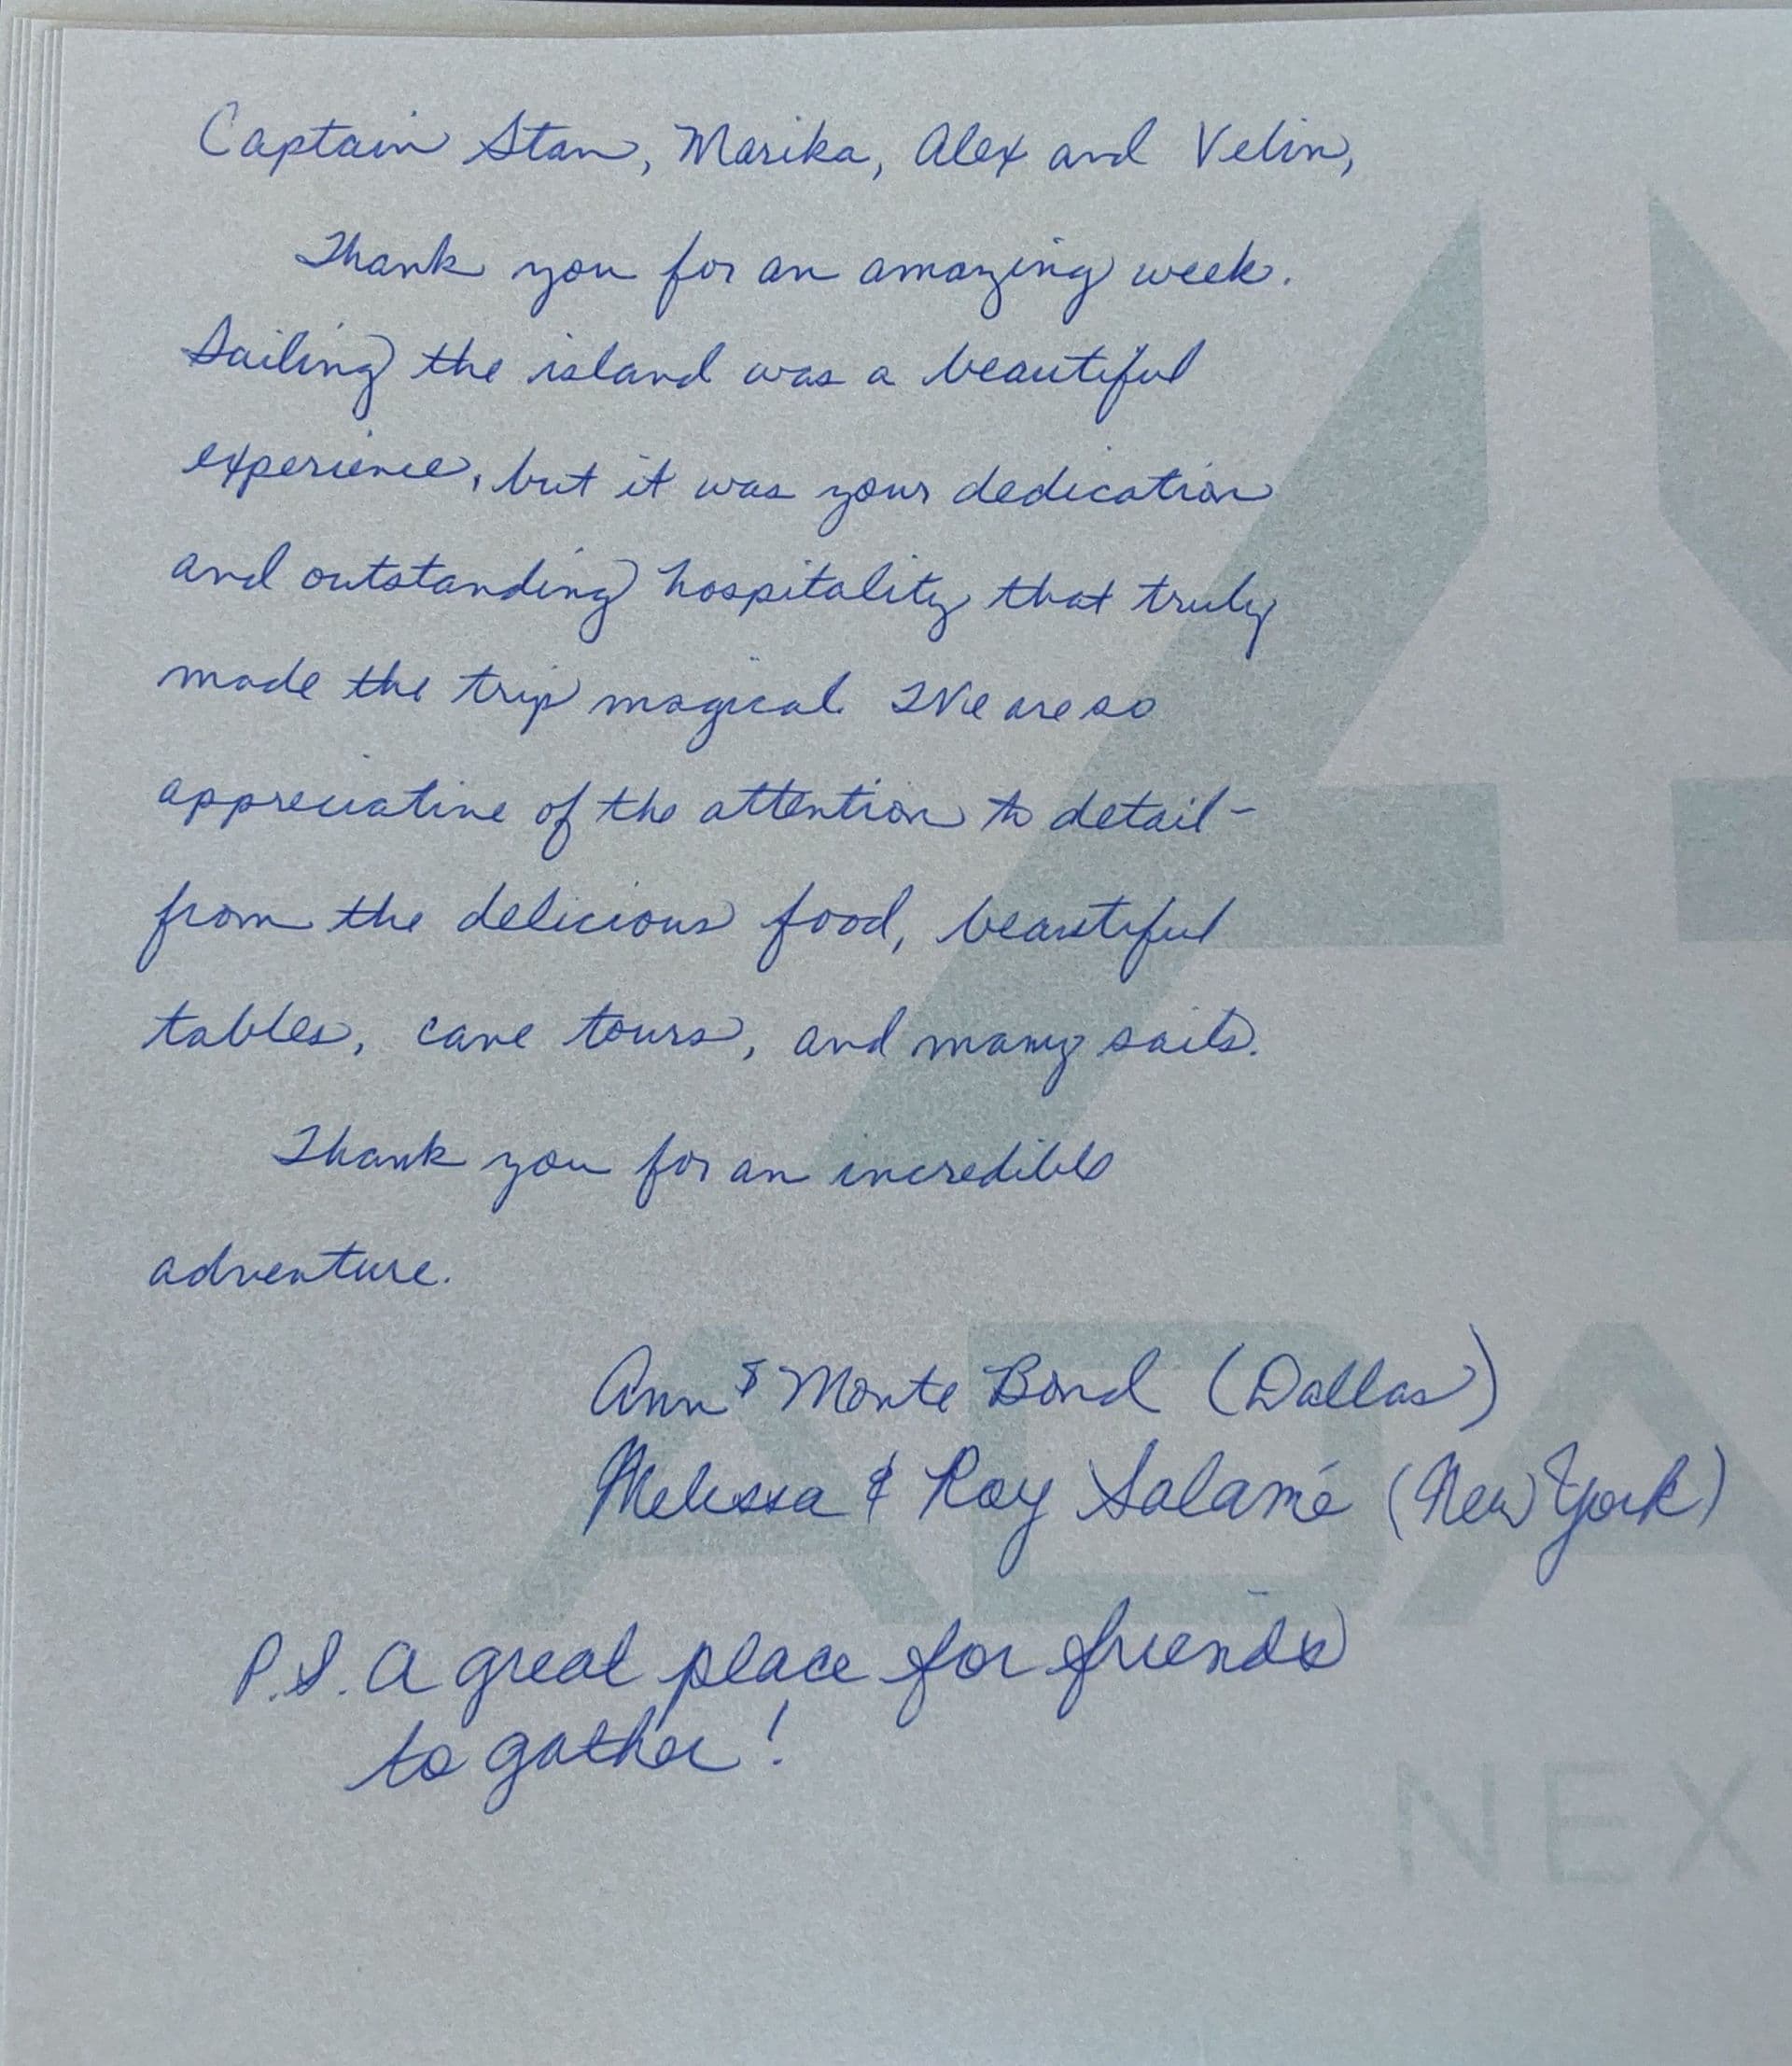 Captain Stan, Marika, Alex and Velin,
Thank you for an amazing week.
Sailing the island was a beautiful
experience, but it was your dedication
and outstanding hospitality that truly
made the trip magical. We are so
appreciative of the attention to detail-
from the delicious food, beautiful
tables, cave tours, and many sails.
Thank you for an incredible
adventure.
Ann & Monte Bond (Dallas)
Melissa & Roy Salamé (New York)
P.S. A great place for friends
to gather!
ADA
NEX